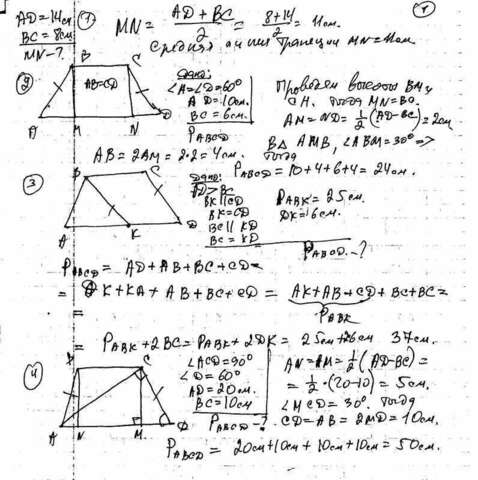 AD=14см
BC=8см
MN-?
① MN = AD + BC / 2 = 8+14 / 2 = 11см.
Средняя линия трапеции MN=11см.
②
B C
AB=CD
A M N D
Дано:
∠A=∠D=60°
AD=10см.
BC=6см.
P ABCD
Проведем высоты BM и
CH. Тогда MN=BC.
AM=ND=1/2(AD-BC)=2см
В△ AMB, ∠ABM=30° =>
тогда
AB=2AM=2·2=4см.
P ABCD = 10+4+6+4=24см.
③
B C
A K D
Дано:
AD>BC
BK||CD
BK=CD
BC||KD
BC=KD
P ABK=25см.
DK=6см.
P ABCD-?
P ABCD = AD+AB+BC+CD=
= DK+KA+AB+BC+CD = AK+AB+CD+BC+BC=
P ABK
=
= P ABK+2BC=P ABK+2DK= 25см 37см.
④
B C
A N M D
∠ACD=90°
∠D=60°
AD=20см.
BC=10см
P ABCD-?
AN=AM=1/2(AD-BC)=
=1/2·(20-10)=5см.
∠MCD=30°. тогда
CD=AB=2MD=10см.
P ABCD = 20см+10см+10см+10см=50см.